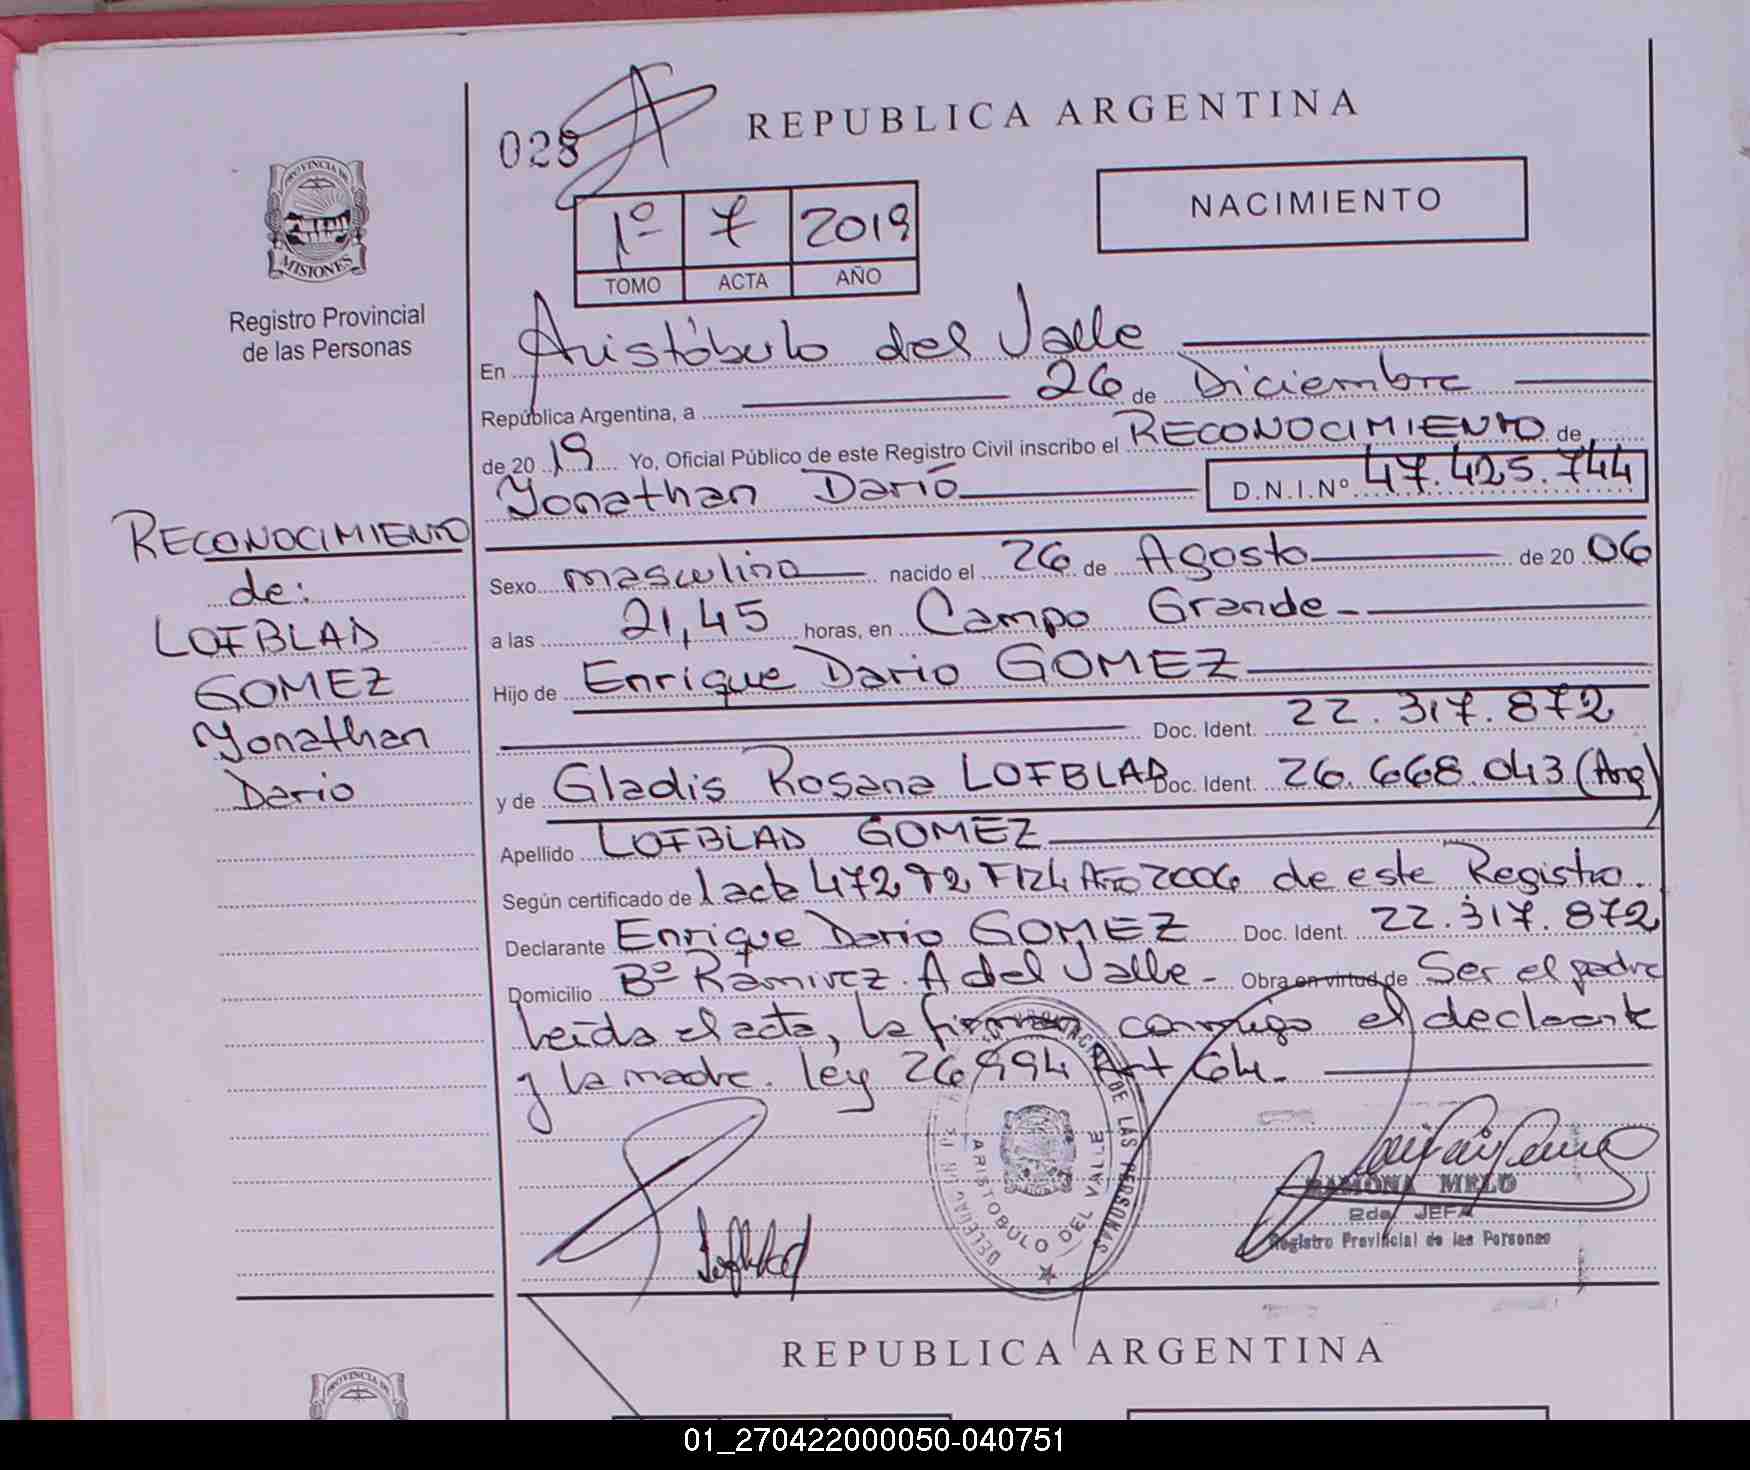 REPUBLICA ARGENTINA
028
NACIMIENTO
1º 7 2019
TOMO ACTA AÑO
PROVINCIA DE
MISIONES
Registro Provincial
de las Personas
En Aristóbulo del Valle
República Argentina, a 26 de Diciembre
de 2019 Yo, Oficial Público de este Registro Civil inscribo el RECONOCIMIENTO de
Yonathan Darió D.N.I.Nº 47.425.744
RECONOCIMIENTO
de:
LOFBLAD
GOMEZ
Yonathan
Dario
Sexo masculino nacido el 26 de Agosto de 2006
a las 21,45 horas, en Campo Grande
Hijo de Enrique Dario GOMEZ
Doc. Ident. 22.317.872
y de Gladis Rosana LOFBLAD Doc. Ident. 26.668.043 (Arg)
Apellido LOFBLAD GOMEZ
Según certificado de acta 472 Año 2006 de este Registro.
Declarante Enrique Dario GOMEZ Doc. Ident. 22.317.872
Domicilio Bº Ramirez. A del Valle - Obra en virtud de Ser el padre
Leida el acta, la firman conmigo el declarante
y la madre. Ley 26994 Art 64.
DE LAS PERSONAS
ARISTOBULO DEL VALLE
Lofblad
RAMONA MELO
2da JEFA
Registro Provincial de las Personas
REPUBLICA ARGENTINA
PROVINCIA DE
01_270422000050-040751